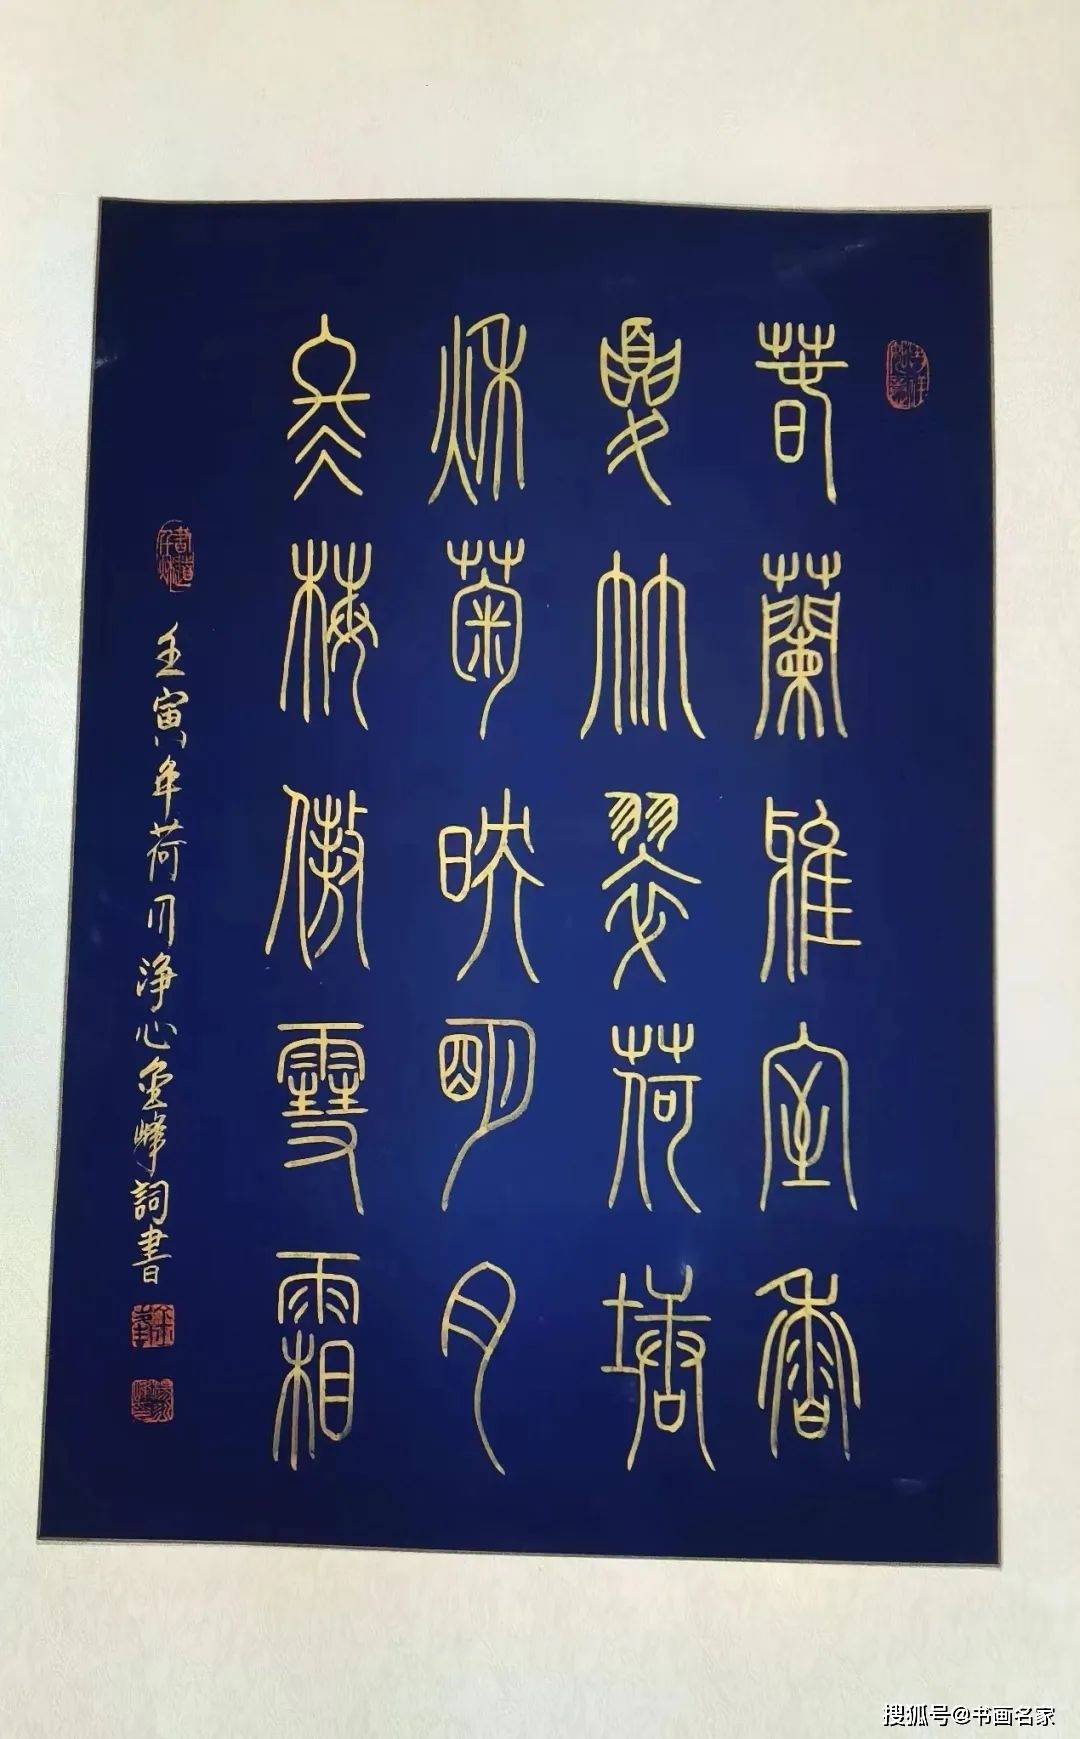 春蘭雅室香
夏竹翠荷塘
秋菊映明月
冬梅傲雪霜
壬寅年荷月淨心金峰詞書
搜狐号@书画名家